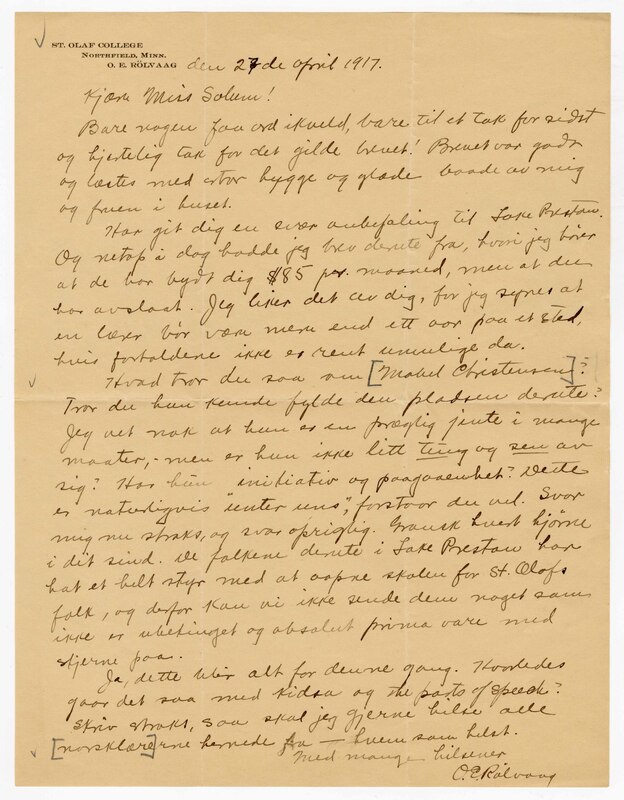 ST. OLAF COLLEGE
NORTHFIELD, MINN.
O. E. RÖLVAAG
den 27de april 1917.
Kjære Miss Solum!
Bare nogen faa ord ikveld, bare til et tak for sidst
og hjertelig tak for det gilde brevet! Brevet var godt
og læstes med stor hygge og glæde baade av mig
og fruen i huset.
Har git dig en svær anbefaling til Lake Preston.
Og netop i dag hadde jeg brev derute fra, hvori jeg hører
at de har bydt dig $85 per. maaned, men at du
har avslaat. Jeg liker det av dig, for jeg synes at
en lærer bør være mere end ett aar paa et sted,
hvis forholdene ikke er rent umulige da.
Hvad tror du saa om [Mabel Christensen]?
Tror du hun kunde fylde den pladsen derute?
Jeg vet nok at hun er en prægtig jente i mange
maater, - men er hun ikke litt tung og sen av
sig? Har hun initiativ og paagaaenhet? Dette
er naturligvis "unter uns", forstaar du vel. Svar
mig nu straks, og svar oprigtig. Gransk hvert hjørne
i dit sind. De folkene derute i Lake Preston har
hat et helt styr med at aapne skolen for St. Olafs
folk, og derfor kan vi ikke sende dem noget som
ikke er ubetinget og absolut prima vare med
stjerne paa.
Ja, dette blir alt for denne gang. Hvorledes
gaar det saa med Kidsa og the parts of speech?
Skriv straks, saa skal jeg gjerne hilse alle
[norsklære]rne hernede fra — hvem som helst.
Med mange hilsener
O. E. Rölvaag